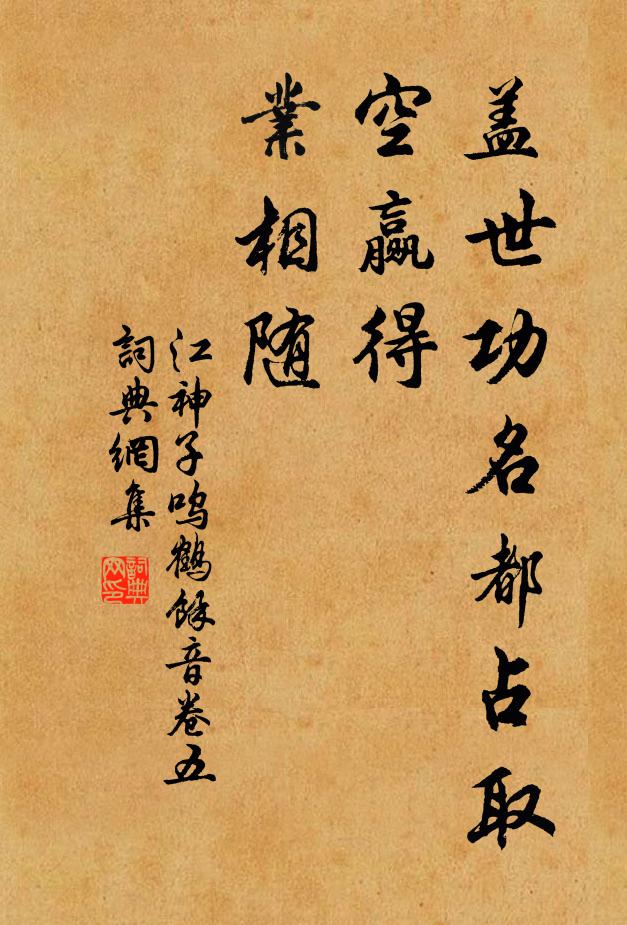 盖世功名都占取
空赢得
業相随
江神子鳴鶴餘音卷五
詞典網集
詞典網印